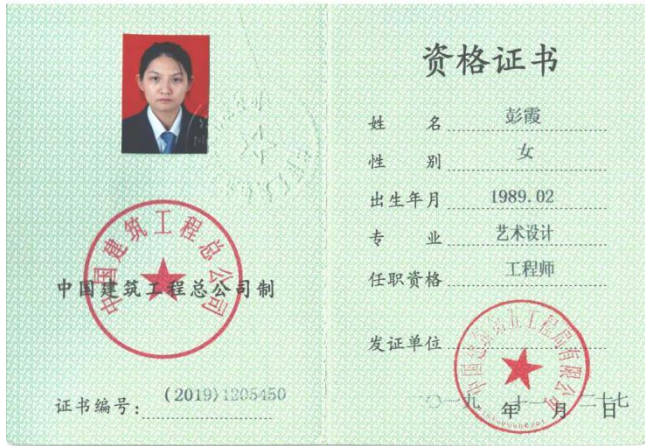 中国建筑工程总公司
中国建筑工程总公司制
证书编号：(2019)1205450
资格证书
姓 名 彭霞
性 别 女
出生年月 1989.02
专 业 艺术设计
任职资格 工程师
发证单位
中国建筑第五工程局有限公司
二〇一九年十一月二十七日